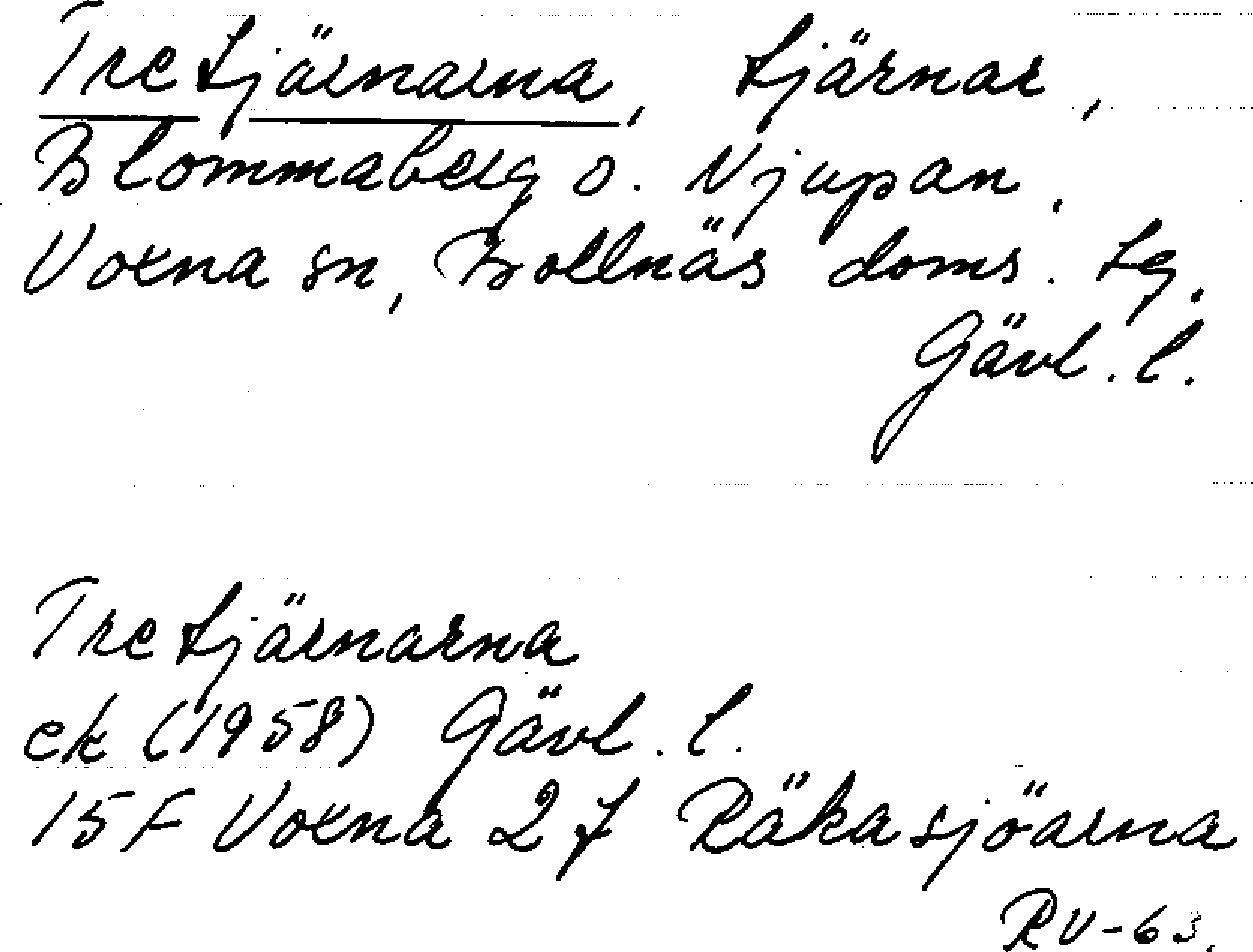 Tre tjärnarna, tjärnar,
Blommaberg o. Njupan,
Voxna sn, Bollnäs doms. tg.
Gävl. l.
Tre tjärnarna
ek (1958) Gävl. l.
15F Voxna 2f Räkasjöarna
RV-63.